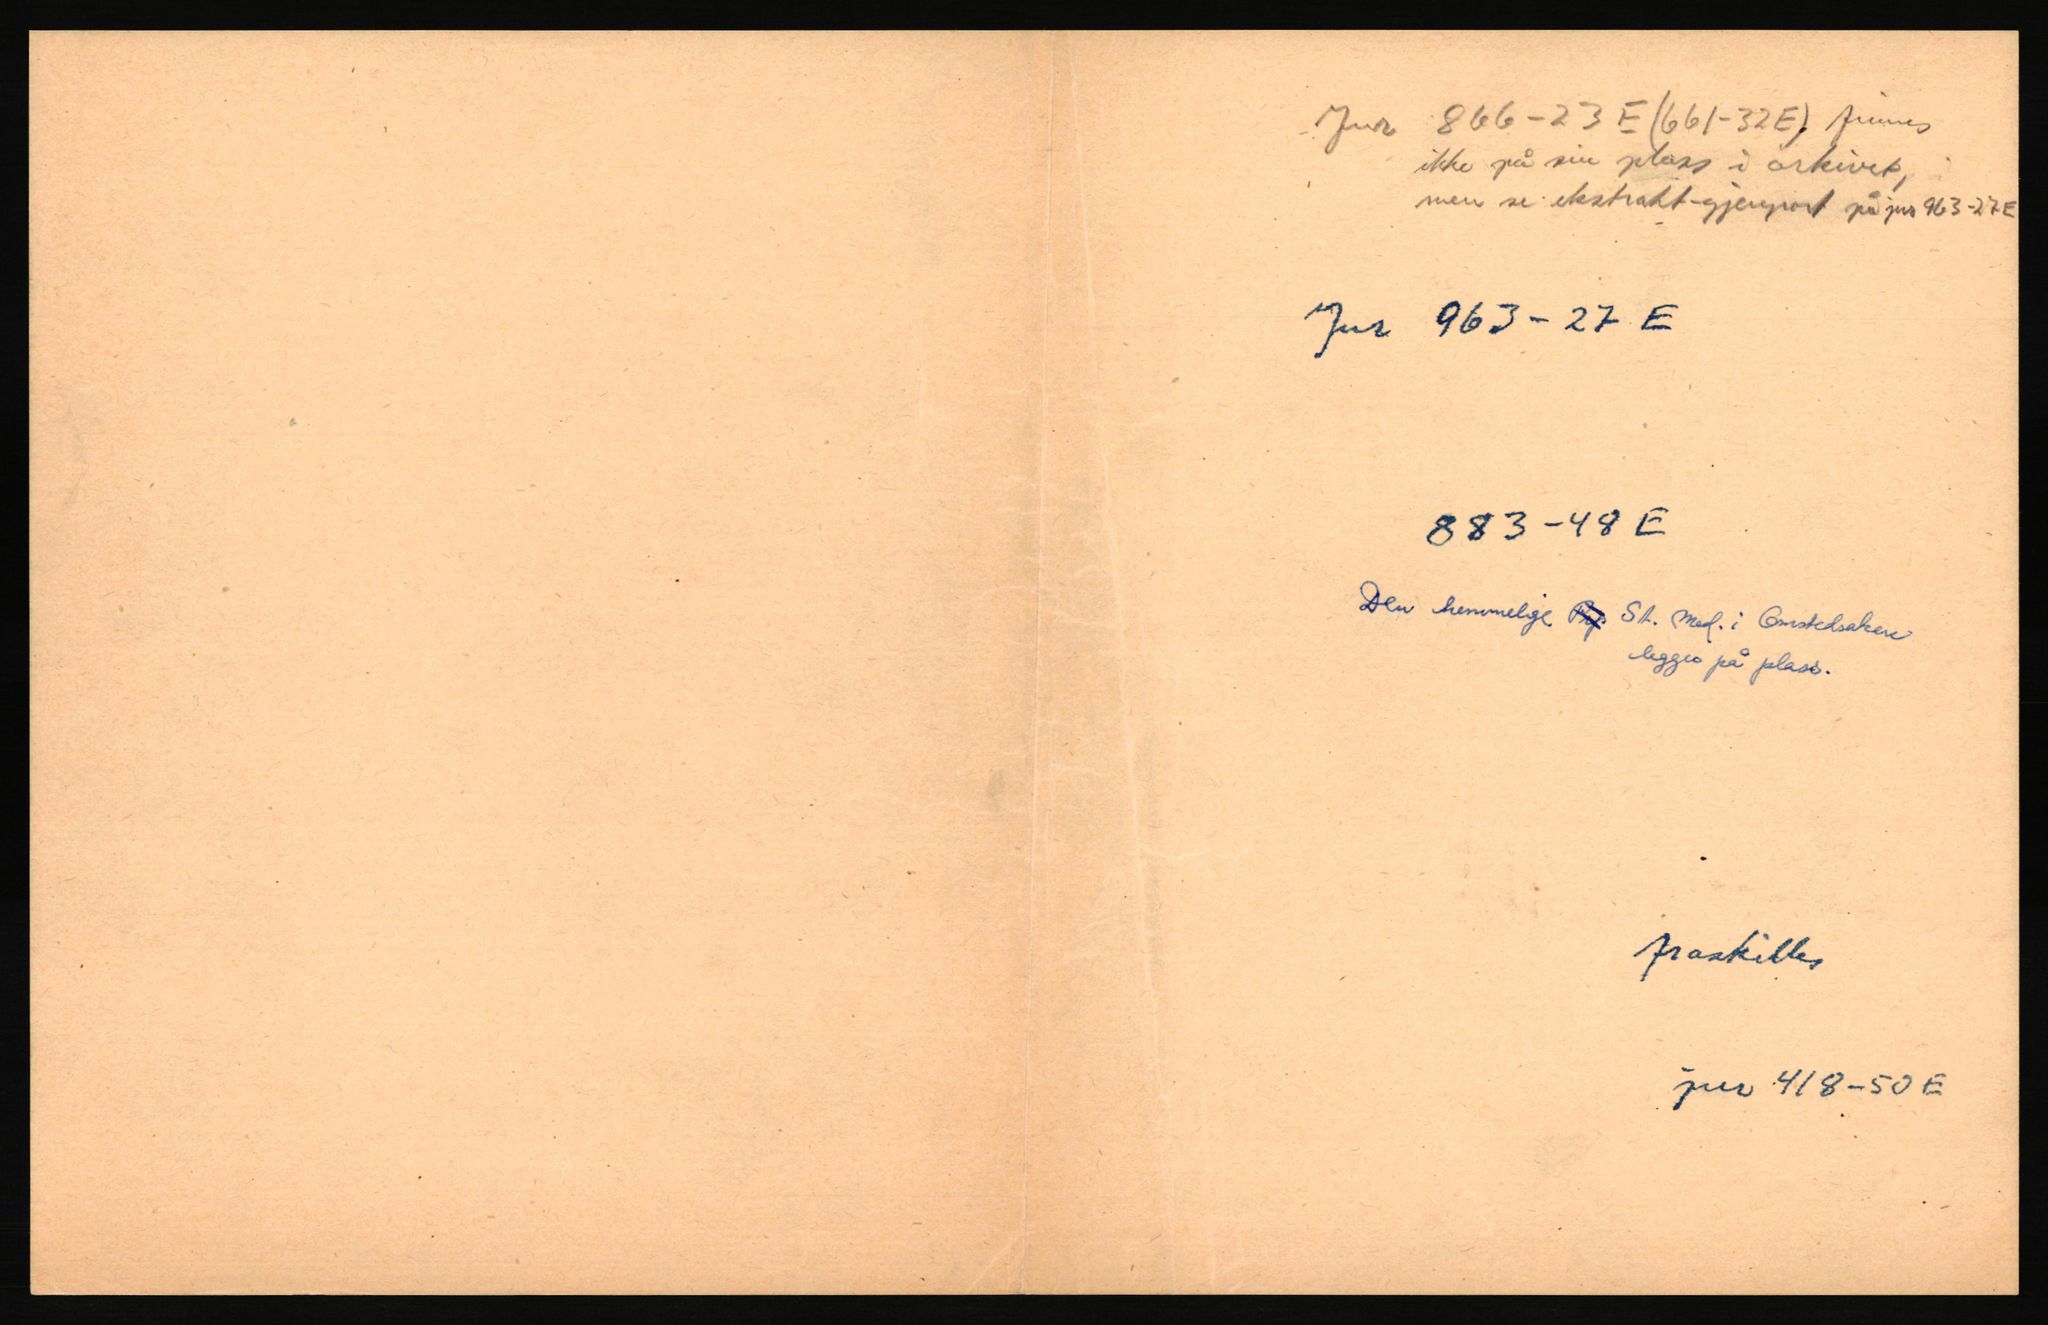 Jur 866-23 E (661-32E) finnes
ikke på sin plass i arkivet,
men se ekstrakt-gjenpart på jur 963-27E
Jur 963-27 E
883-48 E
Den hemmelige St. Med. i
legges på plass.
fraskilles
jur 418-50 E